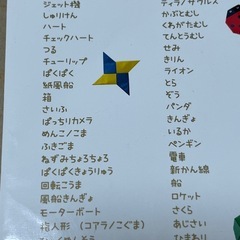 ジェット機
しゅりけん
ハート
チェックハート
つる
チューリップ
ぱくぱく
紙風船
箱
さいふ
ぱっちりカメラ
めんこ/こま
ふきごま
ねずみちょろちょろ
ぱくぱくきょうりゅう
回転こうま
風船きんぎょ
モーターボート
指人形（コアラ/こぐま）
ティラノサウルス
かぶとむし
くわがたむし
てんとうむし
せみ
きりん
ライオン
とら
ぞう
パンダ
きんぎょ
いるか
ペンギン
電車
新かん線
船
ロケット
さくら
あじさい
ひまわり